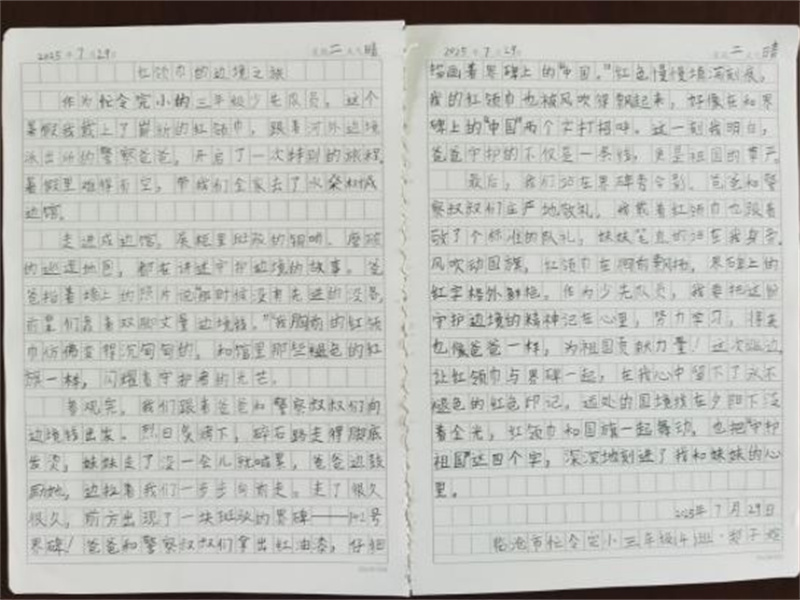 2025年7月29日 星期二 天气晴
红领巾的边境之旅
作为忙令完小的三年级少先队员，这个
暑假我戴上了崭新的红领巾，跟着河外边境
派出所的警察爸爸，开启了一次特别的旅程。
暑假里难得有空，带我们全家去了水桑树戍
边馆。
走进戍边馆，展柜里斑驳的钢哨、磨破
的巡逻地图，都在讲述守护边境的故事。爸
爸指着墙上的照片说“那时候没有先进的设备，
前辈们靠着双脚丈量边境线。”我胸前的红领
巾仿佛变得沉甸甸的，和馆里那些褪色的红
旗一样，闪耀着守护者的光芒。
参观完，我们跟着爸爸和警察叔叔们向
边境线出发。烈日炙烤下，碎石路走得脚底
发烫，妹妹走了没一会儿就喊累，爸爸边鼓
励她，边拉着我们一步步向前走。走了很久
很久，前方出现了一块斑驳的界碑——142号
界碑！爸爸和警察叔叔们拿出红油漆，仔细
2025年7月29日 星期二 天气晴
描画着界碑上的“中国。”红色慢慢填满刻痕，
我的红领巾也被风吹得飘起来，好像在和界
碑上的“中国”两个字打招呼。这一刻我明白，
爸爸守护的不仅是一条线，更是祖国的尊严。
最后，我们站在界碑旁合影。爸爸和警
察叔叔们庄严地敬礼，我戴着红领巾也跟着
敬了个标准的队礼，妹妹笔直的站在我身旁。
风吹动国旗，红领巾在胸前飘扬，界碑上的
红字格外鲜艳。作为少先队员，我要把这份
守护边境的精神记在心里，努力学习，将来
也像爸爸一样，为祖国贡献力量！这次巡边，
让红领巾与界碑一起，在我心中留下了永不
褪色的红色印记。远处的国境线在夕阳下泛
着金光，红领巾和国旗一起舞动，也把“守护
祖国”这四个字，深深地刻进了我和妹妹的心
里。
2025年7月29日
临沧市忙令完小三年级(4)班·郑子